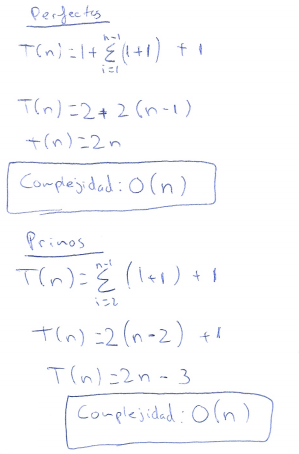 Perfectos
T(n)=1+ n-1 Σ i=1 (1+1) + 1
T(n)=2+2(n-1)
t(n)=2n
Complejidad: O(n)
Primos
T(n)= n-1 Σ i=2 (1+1) + 1
T(n)=2(n-2) +1
T(n)=2n-3
Complejidad: O(n)